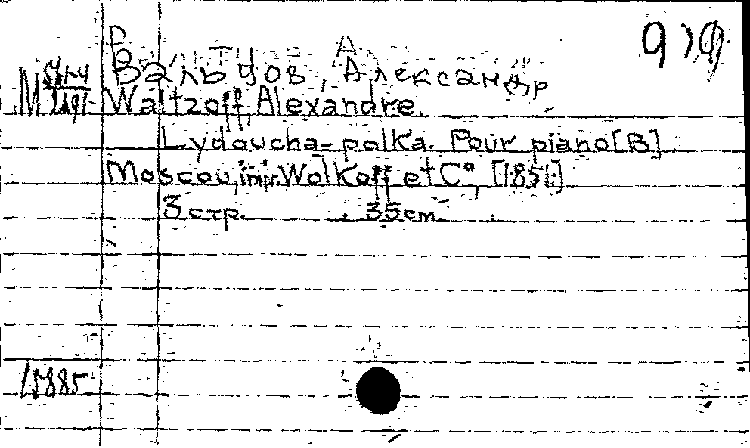 Вальцов, Александр
Waltzoff, Alexandre.
Lydoucha-polka. Pour piano [B]
Moscou, impr. Wolkoff et C°, [185]
3 стр. 35 cm.
15885